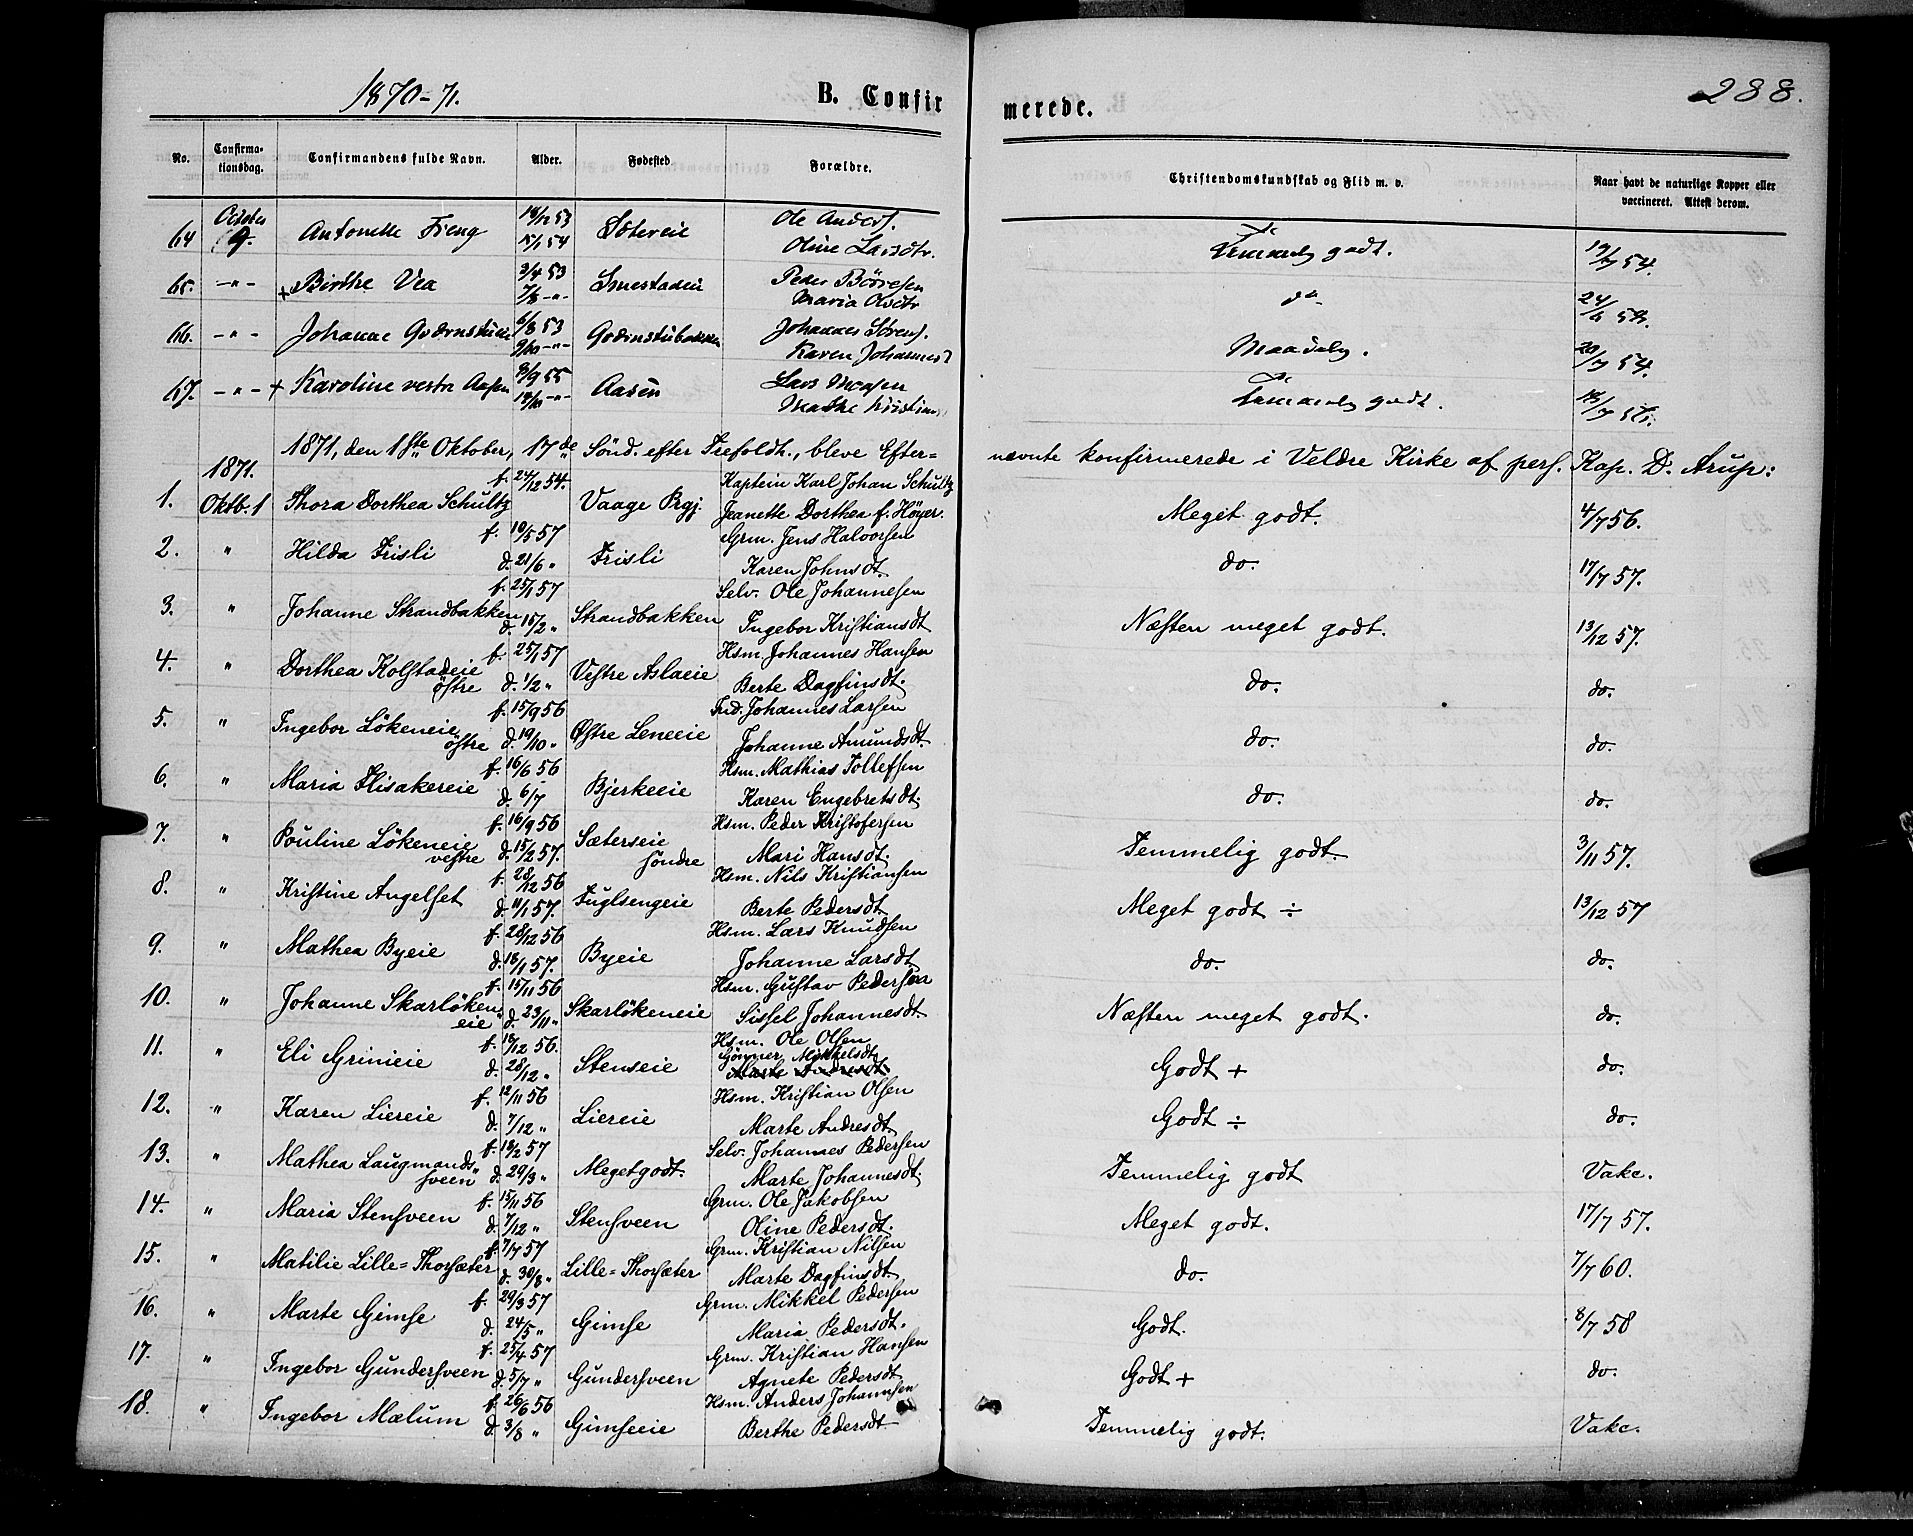 1870-71.
B. Confirmerede.
288.
No. Confirmationsdag. Confirmandens fulde Navn. Alder. Fødested. Forældre. Christendomskundskab og Flid m. v. Naar havt de naturlige Kopper eller vaccineret. Attest derom.
64 October 9. Antonette Fieng 53 15/1 54 Sætereie Ole Anders. Oline Larsdtr. Temmelig godt. 19/7 54.
65. -"- + Birthe Vea 3/4 53 7/8 -"- Smestadeie Peder Börresen Maria Olsdtr do 24/6 53.
66. -"- Johanne 6/8 53 9/10 -"- Johannes Sörens. Karen Johannesd Maadelig. 20/7 54.
67. -"- + Karoline vestre Aasen 8/9 55 14/10 -"- Aasen Lars Mathe Kristians Temmelig godt. 18/7 56.
1871, den 1ste Oktober, 17de Sönd. efter Trefoldh., bleve Efternævnte konfirmerede i Veldre Kirke af pers. Kap. D. Arup:
1871.
1. Oktb. 1 Thora Dorthea Schultz f. 24/12 54. Vaage Prgj. Kaptein Karl Johan Schultz Jeanette Dorthea f. Höyer. Meget godt. 4/7 56.
2. " Hilda Frisli f. 10/5 57 d. 21/6 " Frisli Grm. Jens Halvorsen Karen Johnsdt. do. 17/7 57.
3. " Johanne Strandbakken f. 25/1 57 d. 15/2 " Strandbakken Selv. Ole Johannesen Ingebor Kristiansdt Næsten meget godt. 13/12 57.
4. " Dorthea Kolstadeie östre f. 25/1 57 d. 1/2 " Vestre Aslaeie Hsm. Johannes Hansen Berte Dagfinsdt. do. do.
5. " Ingebor Lökeneie östre f. 15/9 56 d. 19/10 " Østre Leneeie Ind. Johannes Larsen Johanne Amundsdt. do. do.
6. " Maria Flisakereie f. 16/6 56 d. 6/7 Bjerkeeie Hsm. Mathias Tollefsen Karen Engebretsdt. do. do.
7. " Pouline Lökeneie vestre f. 16/9 56 d. 15/2 57. Sæterseie söndre Hsm. Peder Kristofersen Mari Hansdt. Temmelig godt. 3/11 57.
8. " Kristine Angelset f. 28/12 56 d. 11/1 57. Fuglsengeie Hsm. Nils Kristiansen Berte Pedersdt. Meget godt ÷ 13/12 57
9. " Mathea Byeie f. 28/12 56 d. 18/1 57. Byeie Hsm. Lars Knudsen Johanne Larsdt. do. do.
10. " Johanne Skarlökeneie f. 15/11 56 d. 23/11 " Skarlökeneie Hsm. Gustav Pedersen Sissel Johannesdt. Næsten meget godt. do.
11. " Eli Grinieie f. 10/12 56. d. 28/12 " Stenseie Hsm. Ole Olsen Gönner Mikkelsdt. Marte Andresdt. Godt + do.
12. " Karen Liereie f. 12/11 56 d. 7/12 " Liereie Hsm. Kristian Olsen Marte Andresdt. Godt ÷ do.
13. " Mathea Laugmandssveen f. 18/2 57 d. 29/3 " Meget godt. Selv. Johannes Pedersen Marte Johannesdt. Temmelig godt Vakc.
14. " Maria Stensveen f. 15/11 56 d. 7/12 " Stensveen Grm. Ole Jakobsen Oline Pedersdt. Meget godt. 17/7 57.
15. " Matilie Lille=Thorsæter f. 7/7 57 d. 30/8 " Lille=Thorsæter Grm. Kristian Nilsen Marte Dagfinsdt. do. 7/7 60.
16. " Marte Gimse f. 29/3 57 d. 24/5 " Gimse Grm. Mikkel Pedersen Maria Pedersdt. Godt. 8/7 58
17. " Ingebor Gundersveen f. 25/4 57 d. 5/7 " Gundersveen Grm. Kristian Hansen Agnete Pedersdt. Godt + do.
18. " Ingebor Mælum f. 26/6 56 d. 3/8 " Gimseeie Hsm. Anders Johannsen Berthe Pedersdt. Temmelig godt. Vakc.